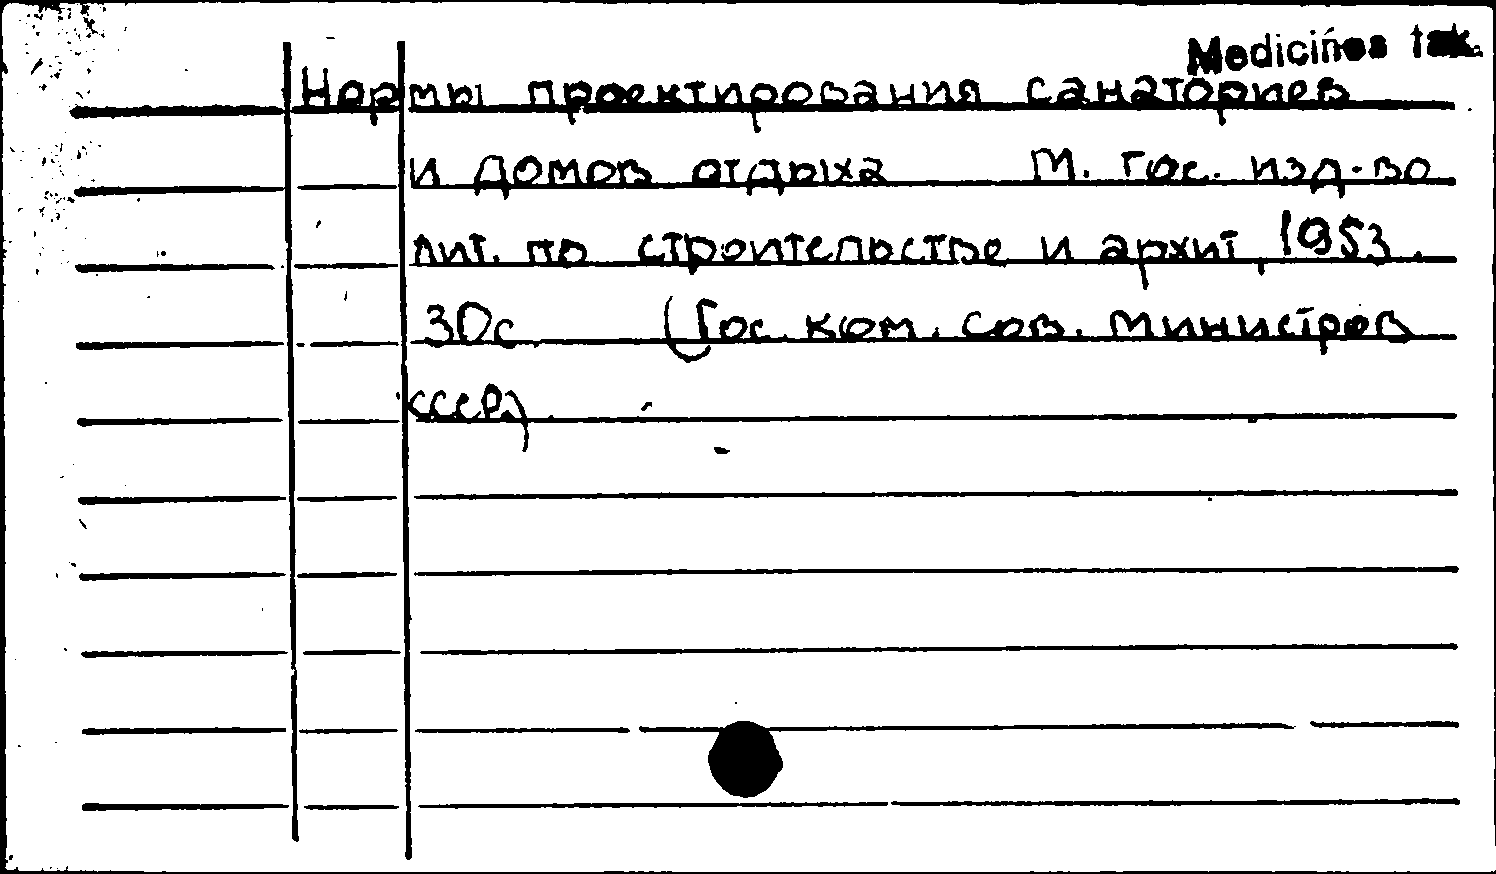 Medicinos fak.
Нормы проектирования санаториев
и домов отдыха М. Гос. изд-во
лит. по строительстве и архит, 1953.
30с (Гос. ком. сов. министров
СССР).